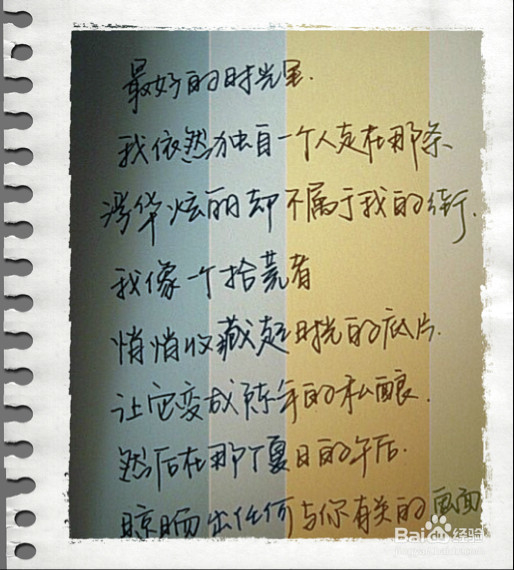 最好的时光里.
我依然独自一个人走在那条、
浮华炫丽却不属于我的街.
我像一个拾荒者
悄悄收藏起时光的底片.
让它变成陈年的私酿.
然后在那个夏日的午后.
晾晒出任何与你有关的画面
Baidu经验